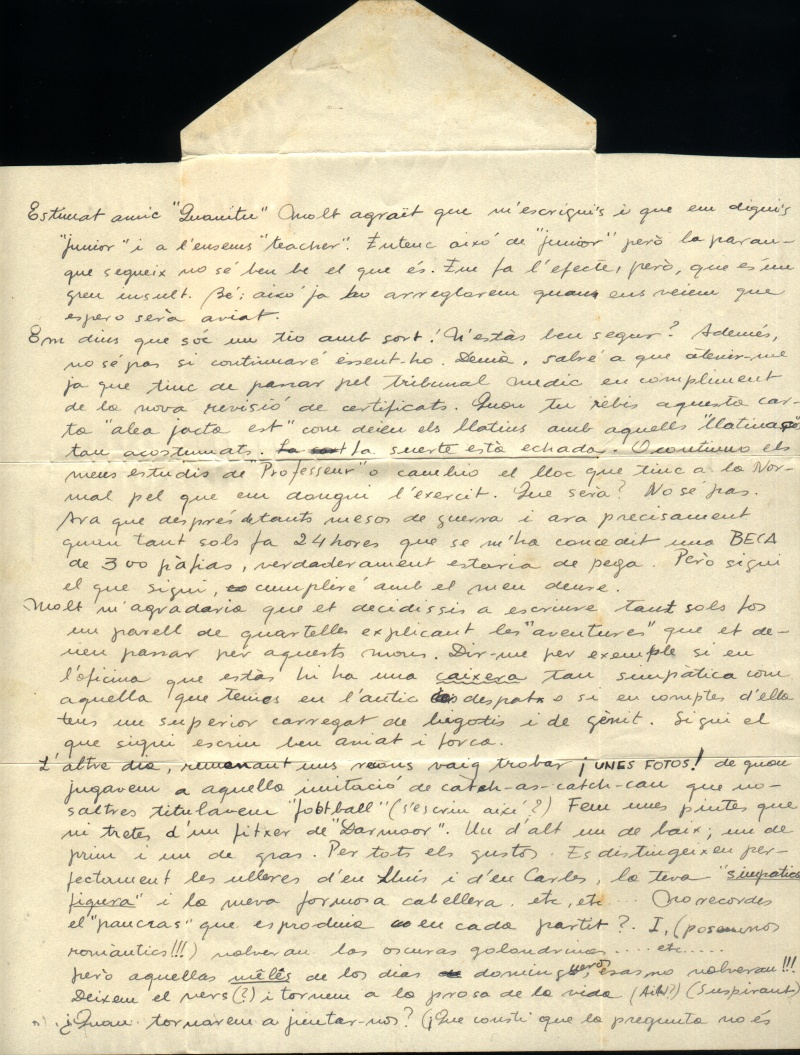 Estimat amic "Quanitu" Molt agraït que m'escriguis i que em diguis
"junior" i a l'ensems "teacher". Entenc això de "junior" però la parau-
que segueix no sé ben be el que és. Em fa l'efecte, però, que es un
greu insult. Bé; això ja ho arreglarem quan ens veiem que
espero serà aviat.
Em dius que sóc un tio amb sort! N'estàs ben segur? Ademés,
no sé pas si continuaré éssent-ho. Demà, sabré a que atenir-me
ja que tinc de passar pel tribunal mèdic en compliment
de la nova revisió de certificats. Quan tu rebis aquesta car-
ta "alea jacta est" com deien els llatins amb aquells "llatinajos"
tan acostumats. La suerte está echada. O continuo els
meus estudis de "Professeur" o cambio el lloc que tinc a la Nor-
mal pel que em dongui l'exercit. Que serà? No sé pas.
Ara que després de tants mesos de guerra i ara precisament
quan tant sols fa 24 hores que se m'ha concedit una BECA
de 300 pàfias, verdaderament estaria de pega. Però sigui
el que sigui, cumpliré amb el meu deure.
Molt m'agradaria que et decidissis a escriure tant sols fos
un parell de quartelles explicant les "aventures" que et de-
uen passar per aquests mons. Dir-me per exemple si en
l'oficina que estàs hi ha una caixera tan simpàtica com
aquella que temos en l'antic despatx o si en comptes d'ella
tens un superior carregat de bigotis i de gènit. Sigui el
que sigui escriu ben aviat i força.
L'altre dia, remenant uns racons vaig trobar ¡UNES FOTOS! de quan
jugavem a aquella imitació de càtch-as-catch-can que no-
saltres titulavem "football" (s'escriu així?) Fem unes pintes que
ni tretes d'un fitxer de "Darmoor". Un d'alt un de baix; un de
prim i un de gras. Per tots els gustos. Es distingeixen per-
fectament les ulleres d'en Lluis i d'en Carles, la teva "simpatica
figura" i la meva formosa cabellera. etc, etc.... No recordes
el "pancras" que es produia en cada partit? I, (posem-nos
romàntics!!!) volveran las oscuras golondrinas.....etc.....
però aquellas mêlés de los dias domingueros, esas no volveran!!!
Deixem el vers (?) i tornem a la prosa de la vida (Aih?) (Suspirant)
¿Quan tornarem a juntar-nos? (¡Que consti que la pregunta no és